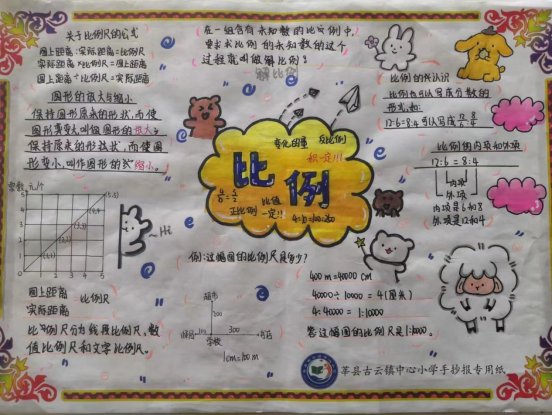 关于比例尺的公式
图上距离:实际距离=比例尺
实际距离×比例尺=图上距离
图上距离÷比例尺=实际距离
在一组含有未知数的比例中,
要求比例的未知数的这个
过程就叫做解比例!
解比例
图形的放大与缩小
保持图形原来的形状,而使
图形变大叫做图形的放大。
保持原来的形状,而使图
形变小,叫作图形的缩小。
变化的量 反比例
积一定!!!
比例
正比例
比值
一定!!
比例的再认识
比例也可以写成分数的
形式,如:
12:6=8:4可以写成
比例的内项和外项
12:6=8:4
内项
外项
内项是6和8
外项是12和4
总数、元/个
(5,5)
(4,4)
(3,3)
(2,2)
~Hi
例:这幅图的比例尺是多少?
图上距离
实际距离
比例尺
比例尺分为线段比例尺、数
值比例尺和文字比例尺。
超市
200
300
学校
书店
1cm=100m
400m=40000cm
40000÷10000=4(厘米)
4:40000=1:10000
答:这幅图的比例尺是1:10000。
莘县古云镇中心小学手抄报专用纸